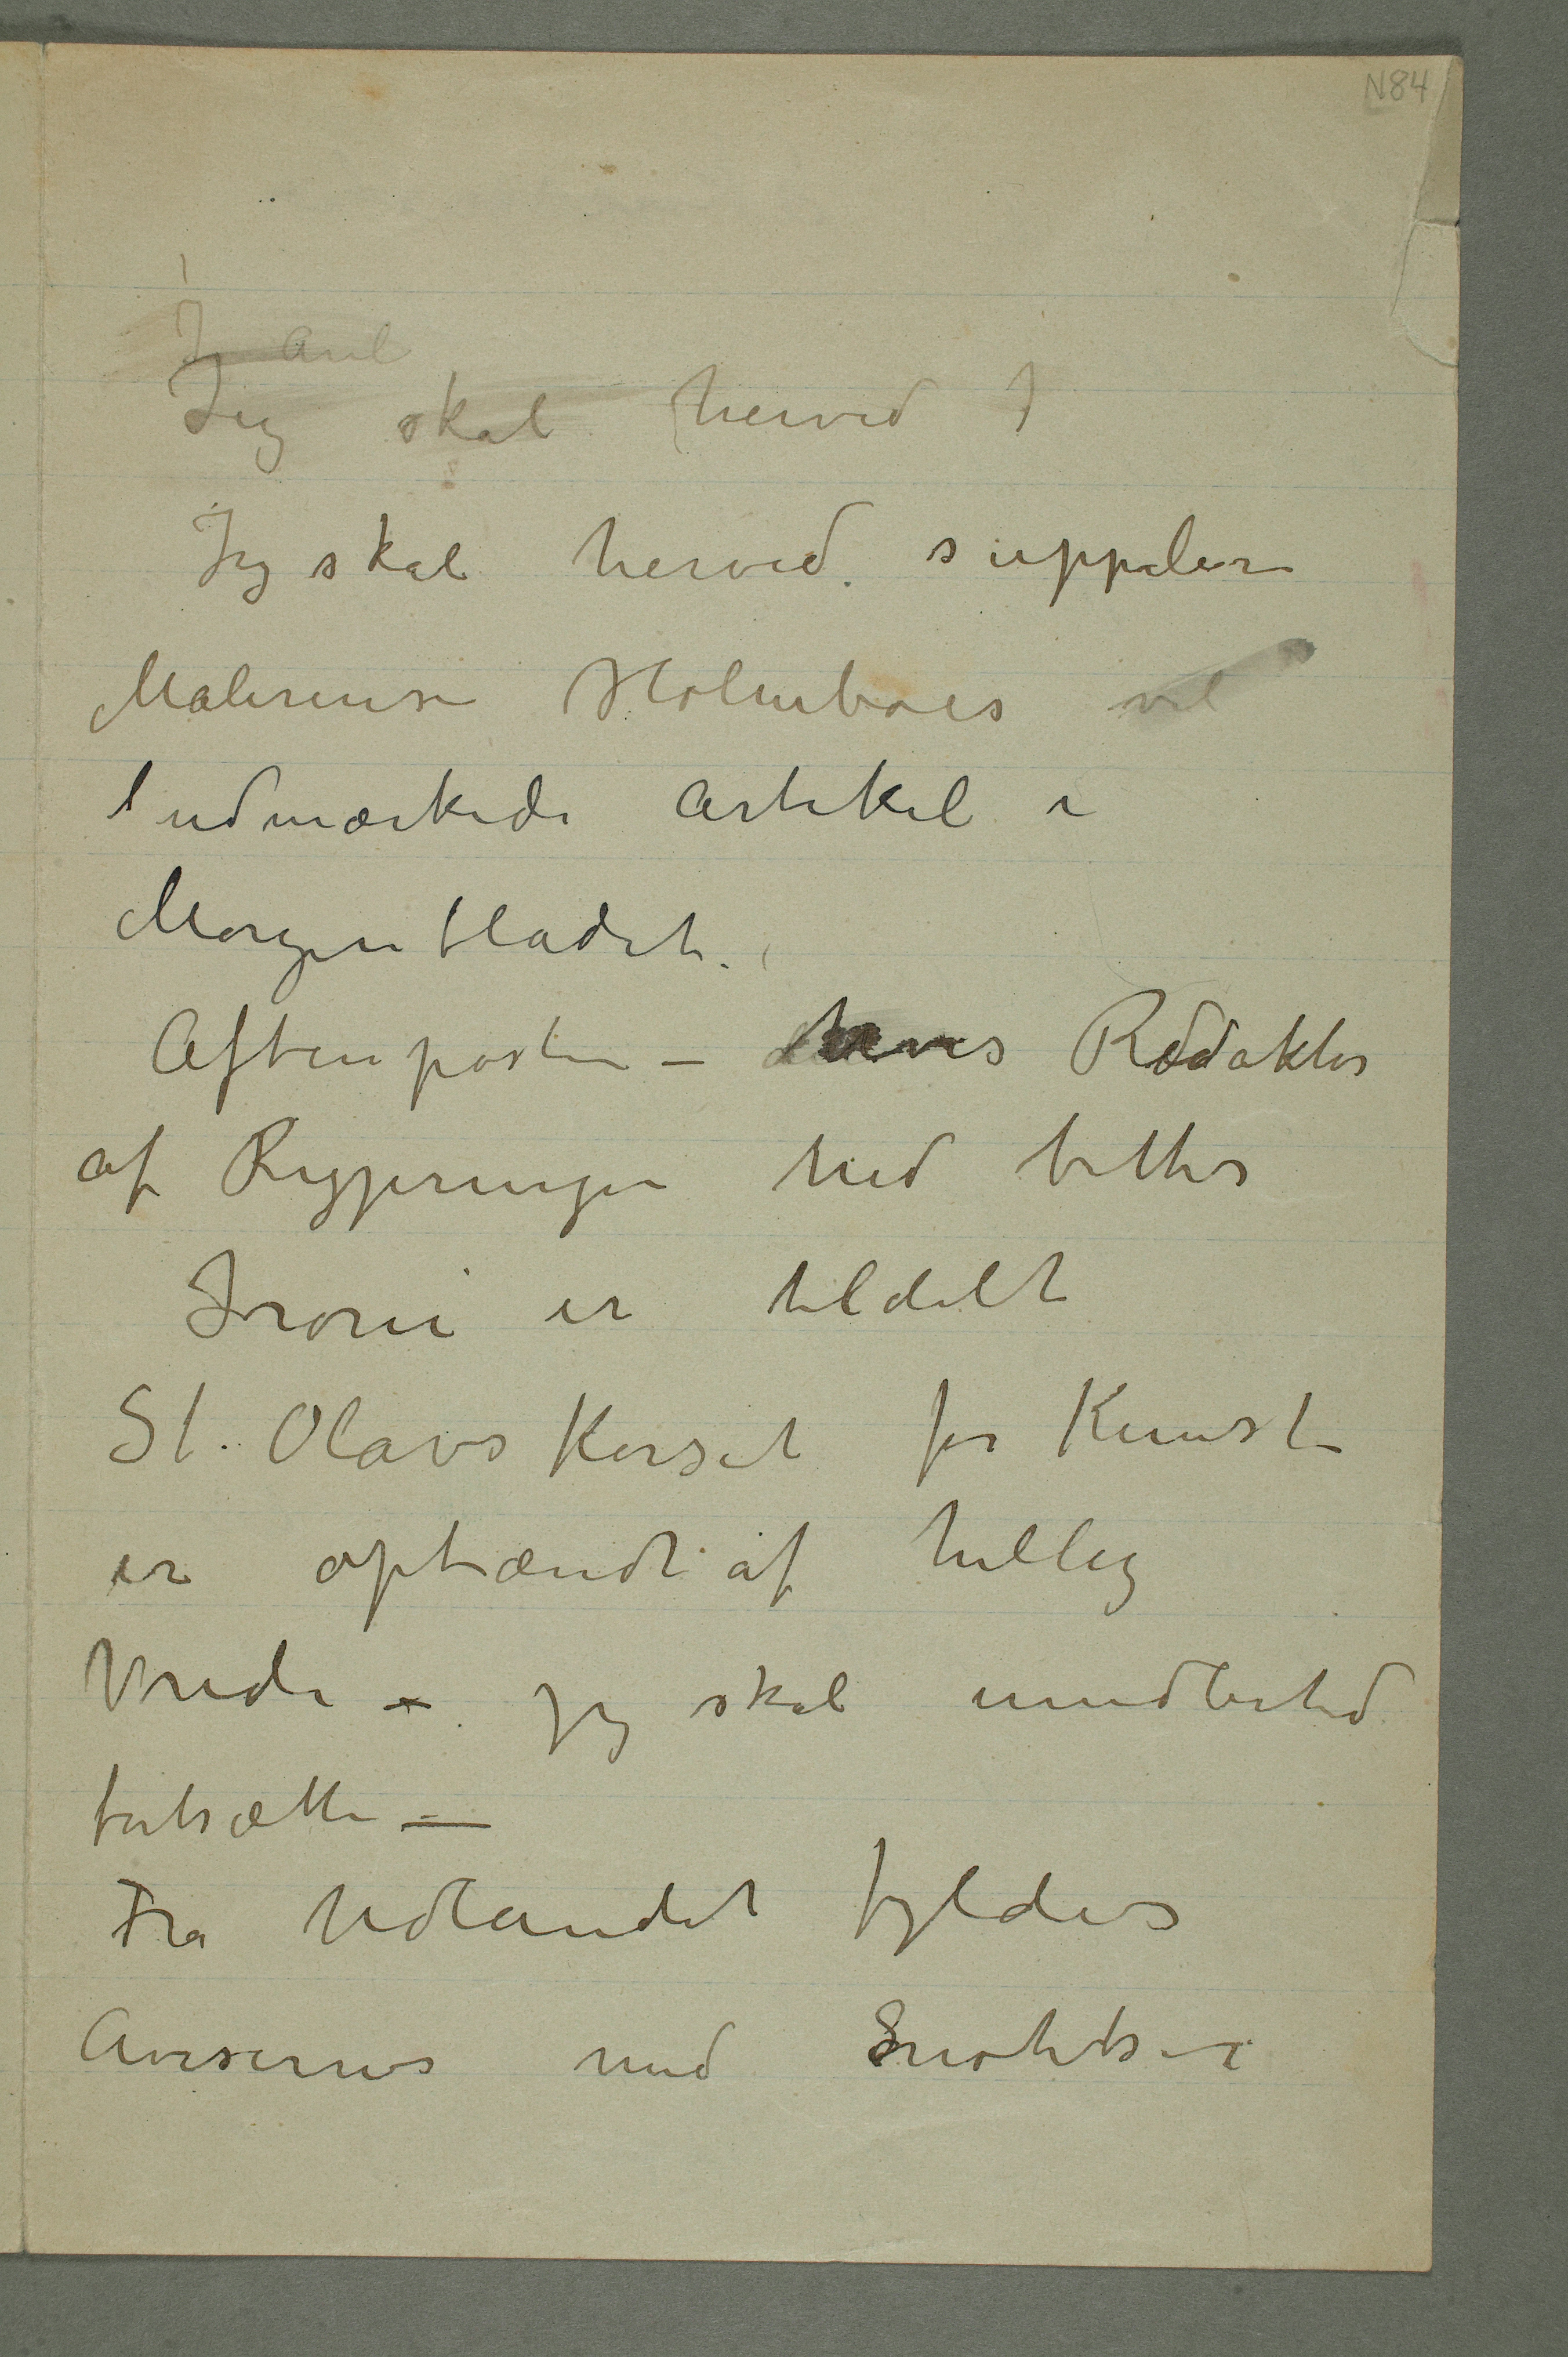 N84
Jeg skal herved
Jeg skal herved supplere
Malerinse Holmboes vel
udmærkede artikel i
Morgenbladet.
Aftenposten – hvis Redaktør
af Regjeringen med bitter
Ironi er tildelt
St. Olavs Korset for Kunst
er optændt af hellig
Vrede – jeg skal imidlertid
fortsætte –
Fra Udlandet fyldes
Aviserne med Smaknotiser